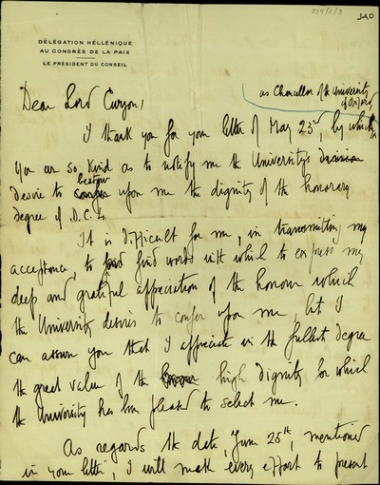 DÉLÉGATION HELLÉNIQUE
AU CONGRÈS DE LA PAIX
LE PRÉSIDENT DU CONSEIL
as Chancellor of the University
of Oxford
Dear Lord Curzon,
I thank you for your letter of May 23rd, by which
you are so kind as to notify me the University's decision
desire to bestow upon me the dignity of the honorary
degree of D.C.L.
It is difficult for me, in transmitting my
acceptance, to find words with which to express my
deep and grateful appreciation of the honour which
the University desires to confer upon me, but I
can assure you that I appreciate in the fullest degree
the great value of the high dignity for which
the University has been pleased to select me.
As regards the date, June 25th, mentioned
in your letter, I will make every effort to present